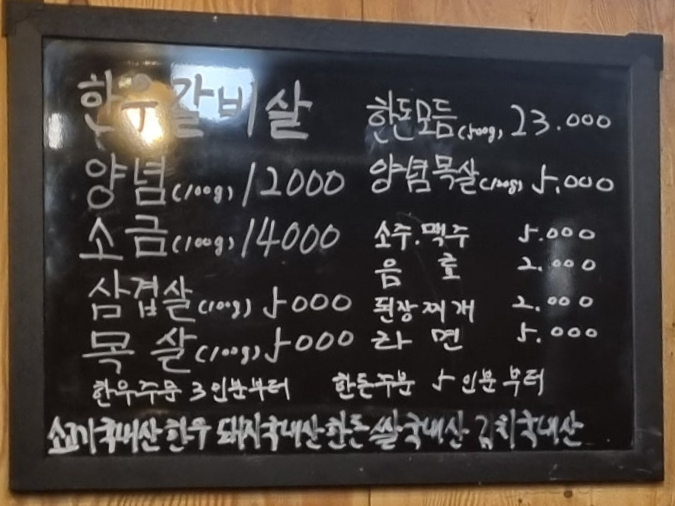 한우갈비살
양념(100g) 12000
소금(100g) 14000
삼겹살(100g) 5000
목살(100g) 5000
한돈모듬(500g) 23.000
양념목살(100g) 5.000
소주.맥주 5.000
음료 2.000
된장찌개 2.000
라면 5.000
한우주문 3인분부터 한돈주문 5인분부터
소고기국내산한우 돼지국내산한돈 쌀국내산 김치국내산